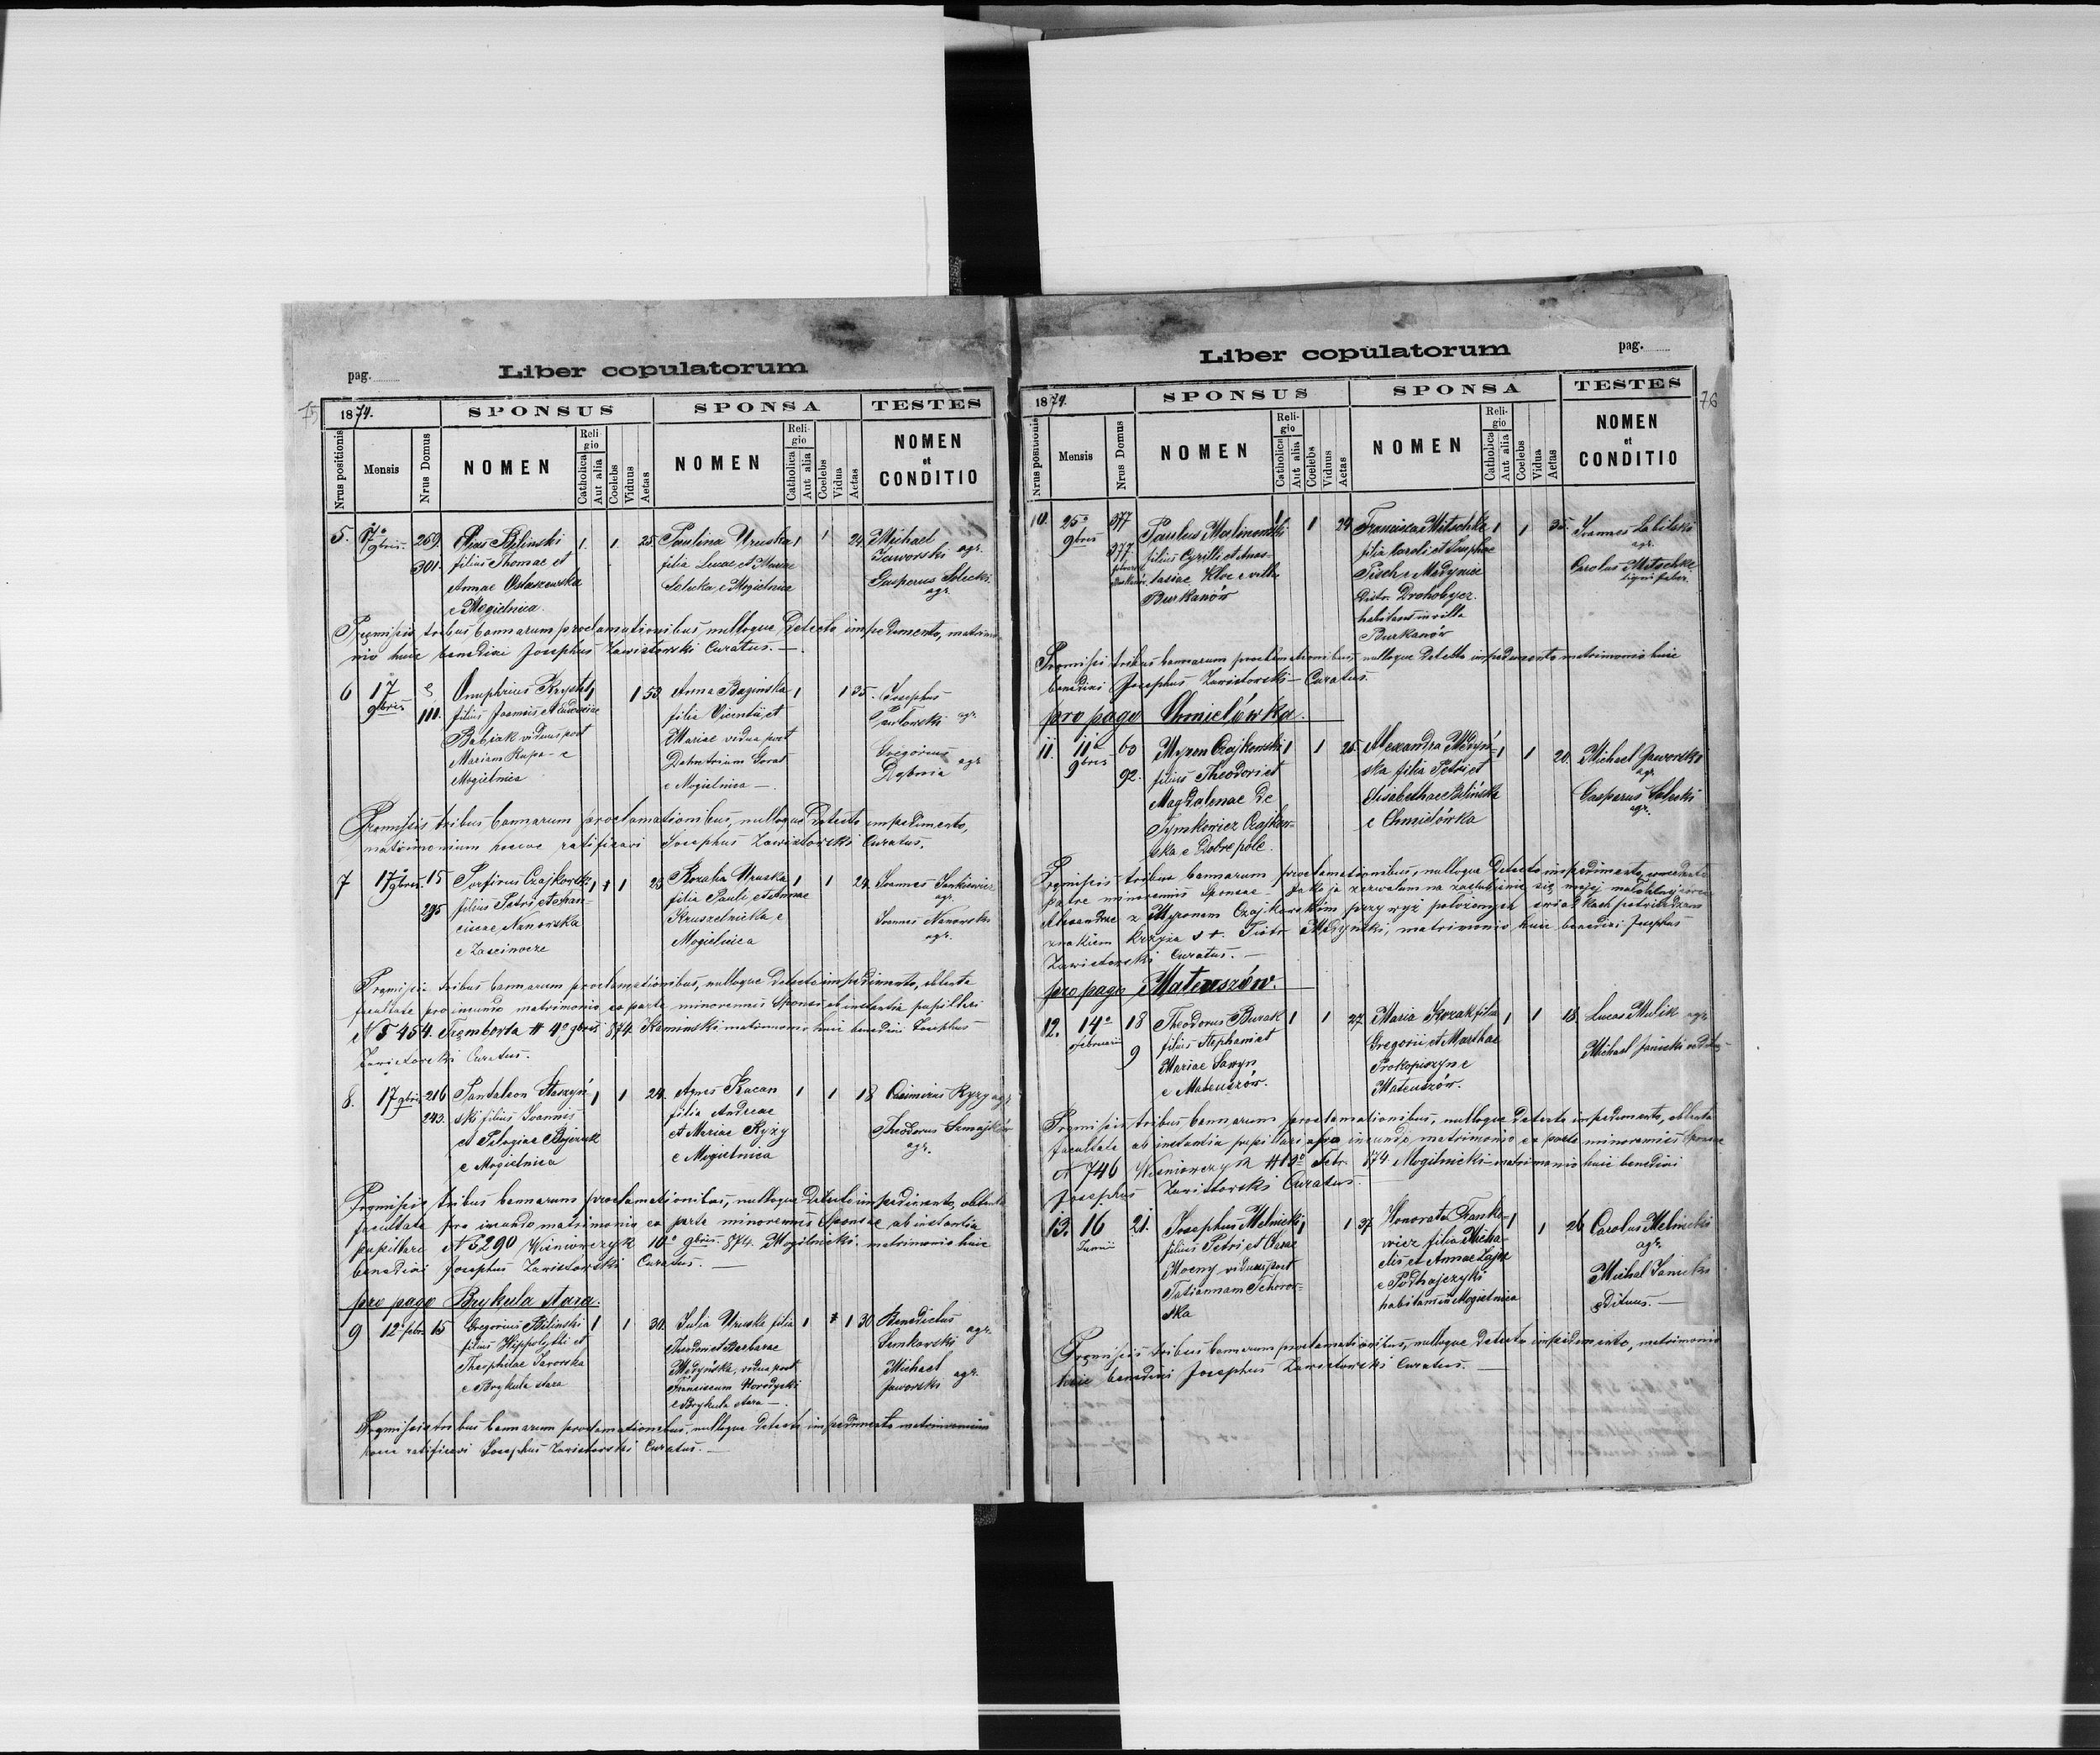 Liber copulatorum
pag.
75
1874.
SPONSUS
SPONSA
TESTES
Nrus positionis
Mensis
Nrus Domus
NOMEN
Religio
Catholica
Aut alia
Coelebs
Viduus
Aetas
NOMEN
Religio
Catholica
Aut alia
Coelebs
Vidua
Aetas
NOMEN
et
CONDITIO
5. 17° 9bris 269. Elias Bilinski 1. 1. 25. Paulina Uruska 1 1 24. Michael
301. filius Thomae et filia Lucae et Mariae Jaworski agr.
Annae Ostaszewska Solecka, e Mogielnica Gasperus Solecki
e Mogielnica. agr.
Praemissis tribus bannarum proclamationibus nulloque detecto impedimento, matrimo-
nio huic benedixi Josephus Zawistorski Curatus.
6 17 9bris Onuphrius Krysztal 1 1 53 Anna Baginska 1 1 35. Josephus
111. filius Joannis et filia Vicentii et agr.
Babiak viduus post Mariae vidua post Gregorius
Mariam Kupa e Demetrium agr.
Mogielnica e Mogielnica
Praemissis tribus bannarum proclamationibus, nulloque detecto impedimento,
matrimonium ratificavi Josephus Zawistorski Curatus.
7 17° 9bris. 15 Porfirius Czajkowski 1 1 1 Rozalia Uruska 1 1 24. Joannes Jankiewicz
295 filius Petri et Fran- filia Pauli et Annae agr.
ciscae Nanowska Kruszelnicka e Joannes Nanowski
e Zascinocze Mogielnica agr.
Praemissis tribus bannarum proclamationibus, nulloque detecto impedimento, obtenta
facultate pro ineundo matrimonio ex parte minorennis Sponsi ab instantia pupillari
N 5454. Trembowla 4° 9bris 874 Kaminski matrimonio huic benedixi Josephus
Zawistorski Curatus.
8. 17 9bris 216 Pantaleon 1 1 24. Agnes Kacan 1 1 18 Casimirus Ryzy agr.
243. ski filius Joannis filia Andreae Theodorus
et Pelagiae et Mariae Ryzy agr.
e Mogielnica e Mogielnica
Praemissis tribus bannarum proclamationibus, nulloque detecto impedimento, obtenta
facultate pro ineundo matrimonio ex parte minorennis Sponsae ab instantia
pupillare N 5290 Wiśniowczyk 10° 9bris. 874. Mogilnicki. matrimonio huic
benedixi Josephus Zawistorski Curatus.
pro pago Brykula stara.
9 12° febr. 15 Gregorius Bilinski 1 1 30. Julia Uruska filia 1 1 30 Benedictus
filius Hippolythi et Theodori et Barbarae agr.
Theophilae Jaworska Medynska, vidua post Michael
e Brykula stara Franciscum Horodyski Jaworski agr.
e Brykula stara
Praemissis tribus bannarum proclamationibus, nulloque detecto impedimento matrimonium
hocce ratificavi Josephus Zawistorski Curatus.
Liber copulatorum
pag.
76
1874.
SPONSUS
SPONSA
TESTES
Nrus positionis
Mensis
Nrus Domus
NOMEN
Religio
Catholica
Aut alia
Coelebs
Viduus
Aetas
NOMEN
Religio
Catholica
Aut alia
Coelebs
Vidua
Aetas
NOMEN
et
CONDITIO
10. 25° 9bris 377 Paulus Malinowski 1 1 24. Francisca Mitschke 1 1 35. Joannes
377 filius Cyrilli et Anas- filia Caroli et Josephae agr.
tasiae Kloc e villa Pisch e Medynice Carolus Mitschke
Burkanów Distr. Drohobycz. ligni faber.
habitans in villa
Burkanów
Praemissis tribus bannarum proclamationibus, nulloque detecto impedimento matrimonio huic
benedixi Josephus Zawistorski Curatus.
pro pago Chmielówka.
11. 11° 9bris 60 Myron Czajkowski 1 1 25 Alexandra Medyń- 1 1 20. Michael Jaworski
92. filius Theodori et ska filia Petri et agr.
Magdalenae de Elisabethae Bilińska Casparus Solecki
Tymkowicz Czajkow- e Chmielówka agr.
ska e Dobropole.
Praemissis tribus bannarum proclamationibus, nulloque detecto impedimento
patre minorennis Sponsae Jako ja zezwalam na zaślubienie się mojej małoletniej córce
Alexandrze z Myronem Czajkowskim przy wyż położonych świadkach potwierdzam
znakiem krzyża + Piotr Medyński, matrimonio huic benedixi Josephus
Zawistorski Curatus.
pro pago Mateuszów.
12. 14° Februarii 18 Theodorus Burak 1 1 27. Maria Kozak filia 1 1 18. Lucas Mulik agr.
9 filius Stephani et Gregorii et Marthae Michael Janicki
Mariae Prokopiszyn e
e Mateuszów. Mateuszów.
Praemissis tribus bannarum proclamationibus, nulloque detecto impedimento, obtenta
facultate ab instantia pupillari pro ineundo matrimonio ex parte minorennis Sponsae
N 746 Wiśniowczyk Febr. 874 Mogilnicki matrimonio huic benedixi
Josephus Zawistorski Curatus.
13. 16 Junii 21. Josephus Melnicki 1 1 37 Honorata Franko- 1 1 26 Carolus Melnicki
filius Petri et wicz filia Micha- agr.
Mocny viduus post elis et Annae Zając Michal Janicki
Tatiannam e Podhajczyki edituus.
ska habitans in Mogielnica
Praemissis tribus bannarum proclamationibus, nulloque detecto impedimento, matrimonio
huic benedixi Josephus Zawistorski Curatus.